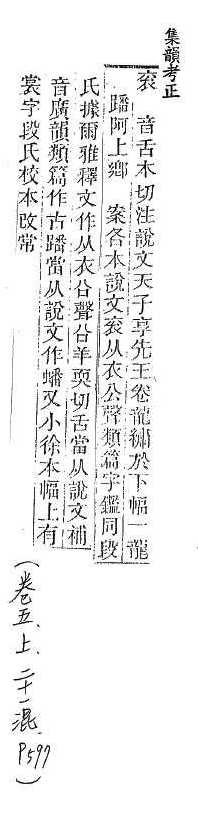 集韻考正
衮　音舌本切注說文天子享先王卷龍繡於下幅一龍
蹯阿上鄉　案各本說文衮从衣公聲類篇字鑑同段
氏據爾雅釋文作从衣㕣聲㕣羊耎切舌當从說文補
音廣韻類篇作古蹯當从說文作蟠又小徐本幅上有
裳字段氏校本改常
(卷五、上、二十一混、P597)